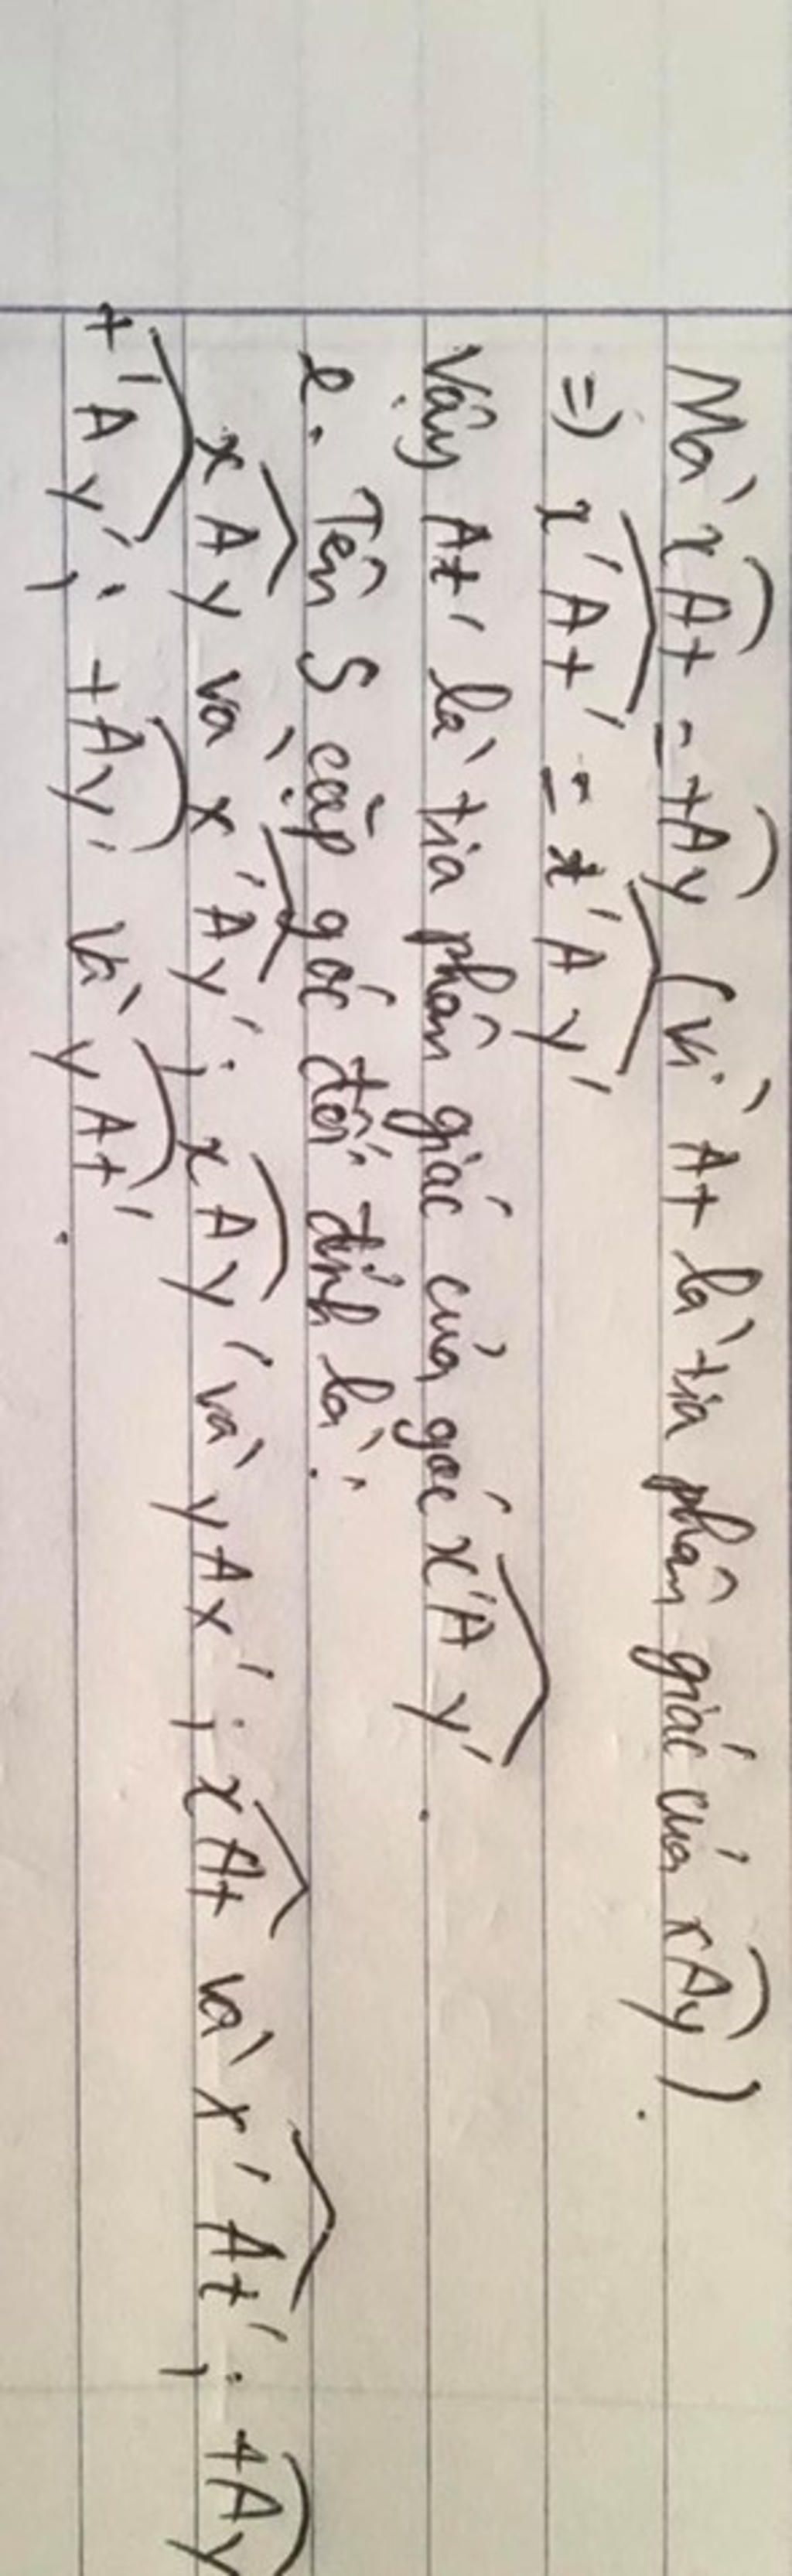 Mà xAt = tAy (vì At là tia phân giác của xAy).
=) x'At' = t'Ay'
Vậy At' là tia phân giác của góc x'Ay'.
e. Tên 5 cặp góc đối đỉnh là:
xAy và x'Ay'; xAy' và yAx'; xAt và x'At'; tAy
t'Ay'; tAy' và yAt'.